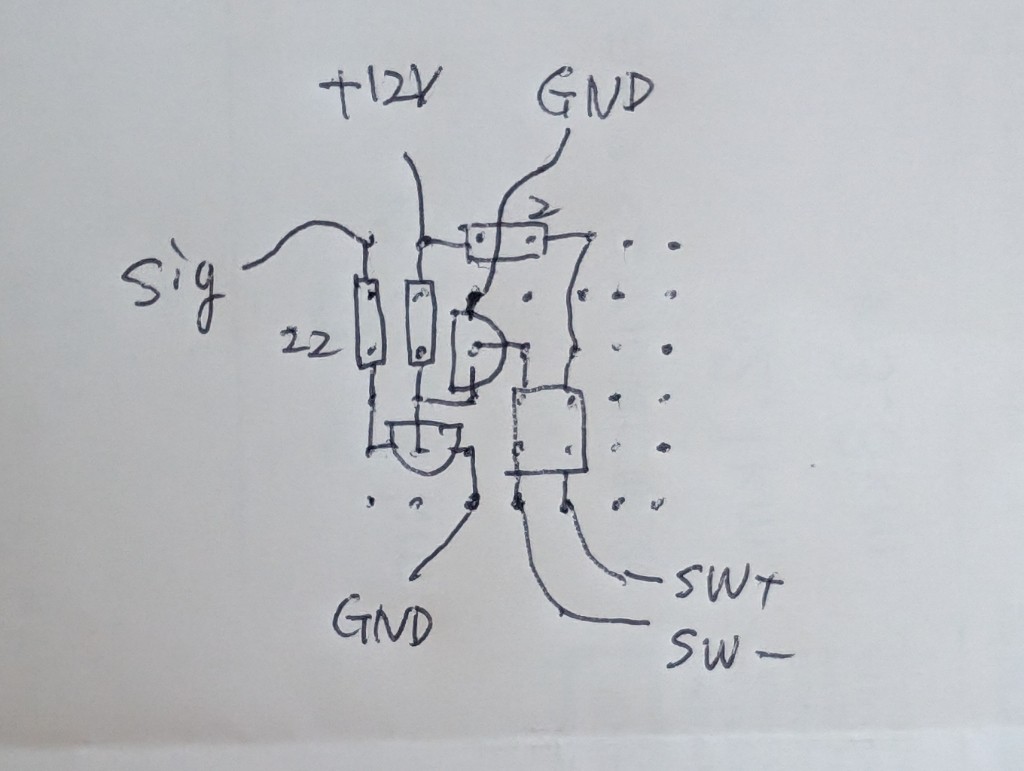 +12V GND
2
Sig
22
GND
SW+
SW-